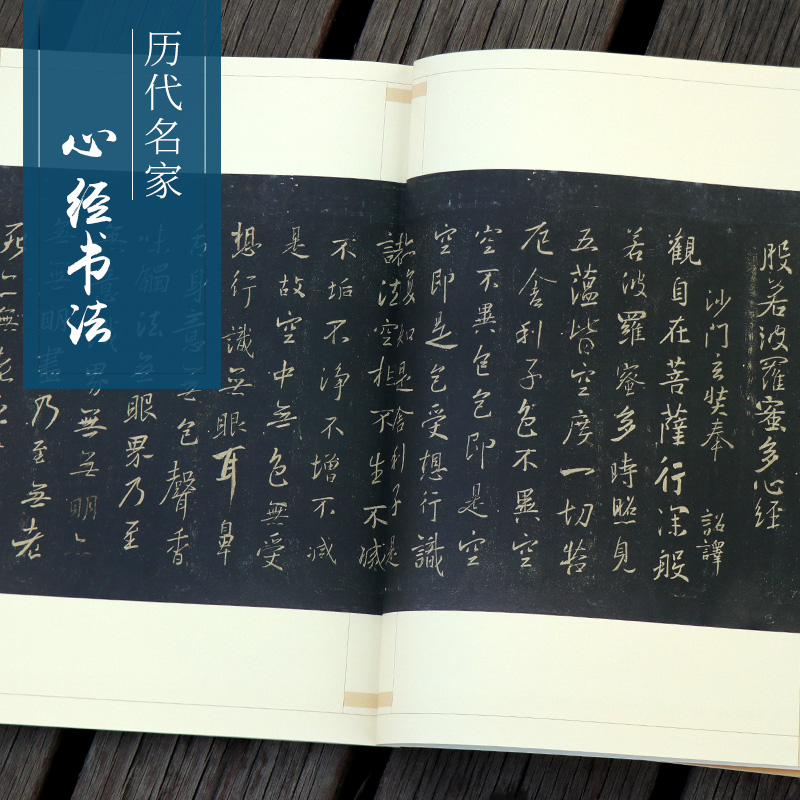 历代名家
心经书法
般若波羅蜜多心經
沙門玄奘奉 詔譯
觀自在菩薩行深般
若波羅蜜多時照見
五蘊皆空度一切苦
厄舍利子色不異空
空不異色色即是空
空即是色受想行識
復如是舍利子是
諸法空相不生不滅
不垢不淨不增不减
是故空中無色無受
想行識無眼耳鼻
舌身意無色聲香
味觸法無眼界乃至
意識界無無明亦
無無明盡乃至無老
死亦無老